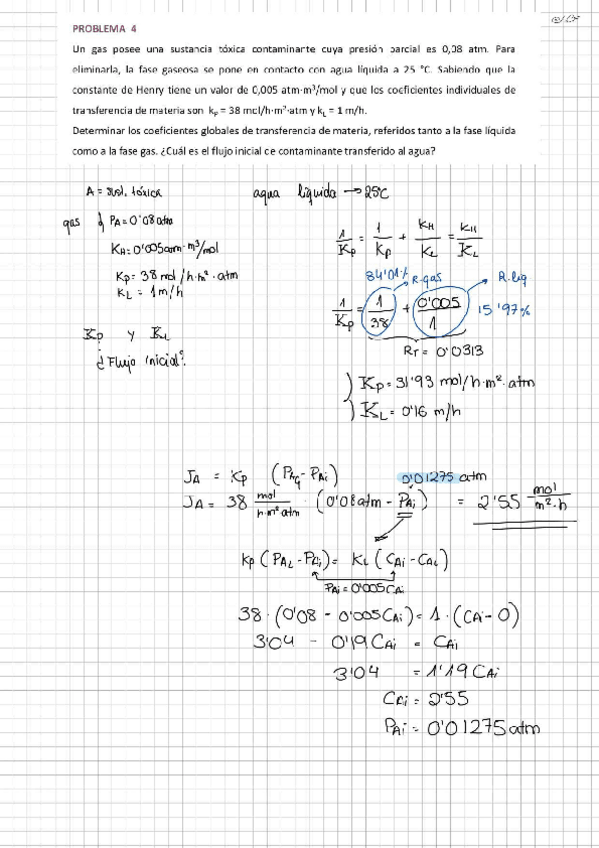 PROBLEMA 4
Un gas posee una sustancia tóxica contaminante cuya presión parcial es 0,08 atm. Para
eliminarla, la fase gaseosa se pone en contacto con agua líquida a 25 °C. Sabiendo que la
constante de Henry tiene un valor de 0,005 atm·m³/mol y que los coeficientes individuales de
transferencia de materia son kₚ = 38 mol/h·m²·atm y k_L = 1 m/h.
Determinar los coeficientes globales de transferencia de materia, referidos tanto a la fase líquida
como a la fase gas. ¿Cuál es el flujo inicial de contaminante transferido al agua?
A = sust. tóxica
agua líquida → 25°C
gas { P_A = 0'08 atm
K_H = 0'005 atm·m³/mol
Kp = 38 mol/h·m²·atm
K_L = 1 m/h
Kp y K_L
¿Flujo inicial?
1/Kp = 1/Kp + K_H/K_L = K_H/K_L
84'01% → R.gas
→ R.liq
1/Kp = 1/38 + 0'005/1
15'97%
R_T = 0'0313
) Kp = 31'93 mol/h·m²·atm
) K_L = 0'16 m/h
J_A = Kp (P_AG - P_Ai)
0'01275 atm
J_A = 38 mol/h·m² atm · (0'08 atm - P_Ai) = 2'55 mol/m²·h
Kp (P_AL - P_Ai) = K_L (C_Ai - C_AL)
P_Ai = 0'005 C_Ai
38 · (0'08 - 0'005 C_Ai) = 1 · (C_Ai - 0)
3'04 - 0'19 C_Ai = C_Ai
3'04 = 1'19 C_Ai
C_Ai = 2'55
P_Ai = 0'01275 atm